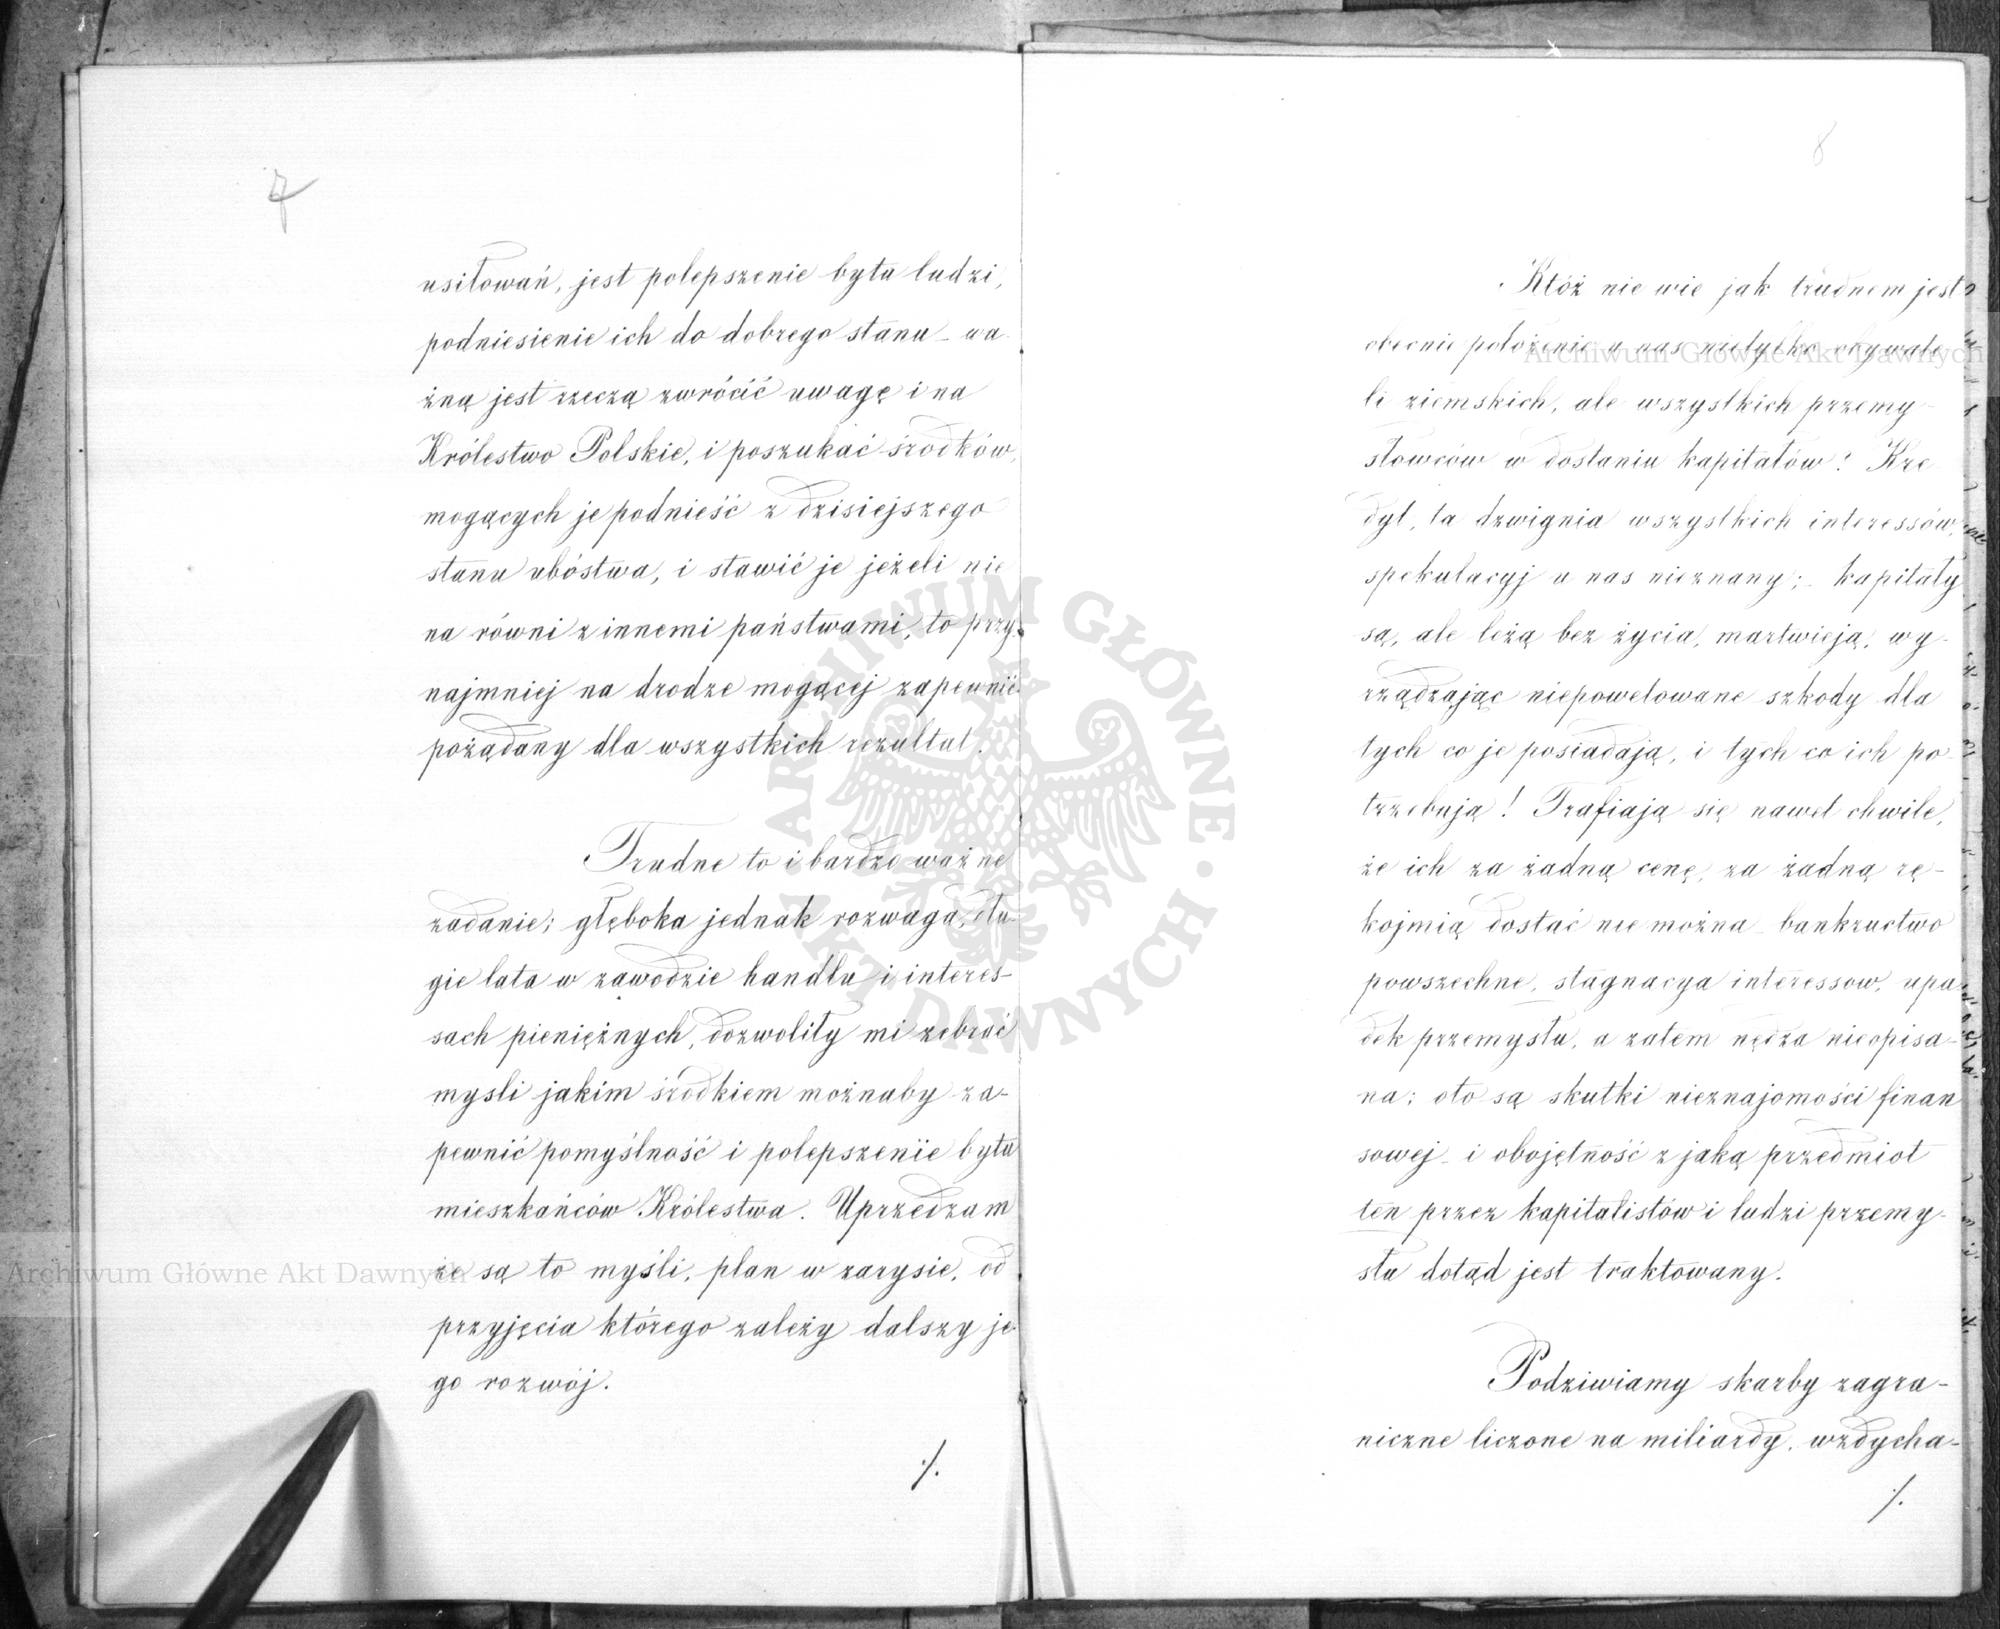 7
usiłowań, jest polepszenie bytu ludzi,
podniesienie ich do dobrego stanu - wa-
żną jest rzeczą zwrócić uwagę i na
Królestwo Polskie, i poszukać środków,
mogących je podnieść z dzisiejszego
stanu ubóstwa, i stawić je jeżeli nie
na równi z innemi państwami, to przy-
najmniej na drodze mogącej zapewnić
pożądany dla wszystkich rezultat.
Trudne to i bardzo ważne
zadanie; głęboka jednak rozwaga, dłu-
gie lata w zawodzie handlu i interes-
sach pieniężnych, dozwoliły mi zebrać
mysli jakim środkiem możnaby za-
pewnić pomyślność i polepszenie bytu
mieszkańców Królestwa. Uprzedzam
że są to myśli, plan w zarysie, od
przyjęcia którego zależy dalszy je-
go rozwój.
./.
8
Któż nie wie jak trudnem jest
obecnie położenie u nas nietylko obywate-
li ziemskich, ale wszystkich przemy-
słowców w dostaniu kapitałów! Kre-
dyt, ta dzwignia wszystkich interessów,
spekulacyj u nas nieznany; - kapitały
są, ale leżą bez życia, martwieją, wy-
rządzając niepowetowane szkody dla
tych co je posiadają, i tych co ich po-
trzebują! Trafiają się nawet chwile,
że ich za żadną cenę, za żadną rę-
kojmią dostać nie można - bankructwo
powszechne, stagnacya interessow, upa-
dek przemysłu, a zatem nędza nieopisa-
na; oto są skutki nieznajomości finan
sowej - i obojętność z jaką przedmiot
ten przez kapitalistów i ludzi przemy-
słu dotąd jest traktowany.
Podziwiamy skarby zagra-
niczne liczone na miliardy, wzdycha-
./.
Archiwum Główne Akt Dawnych
Archiwum Główne Akt Dawnych
ARCHIWUM GŁÓWNE · AKT DAWNYCH ·